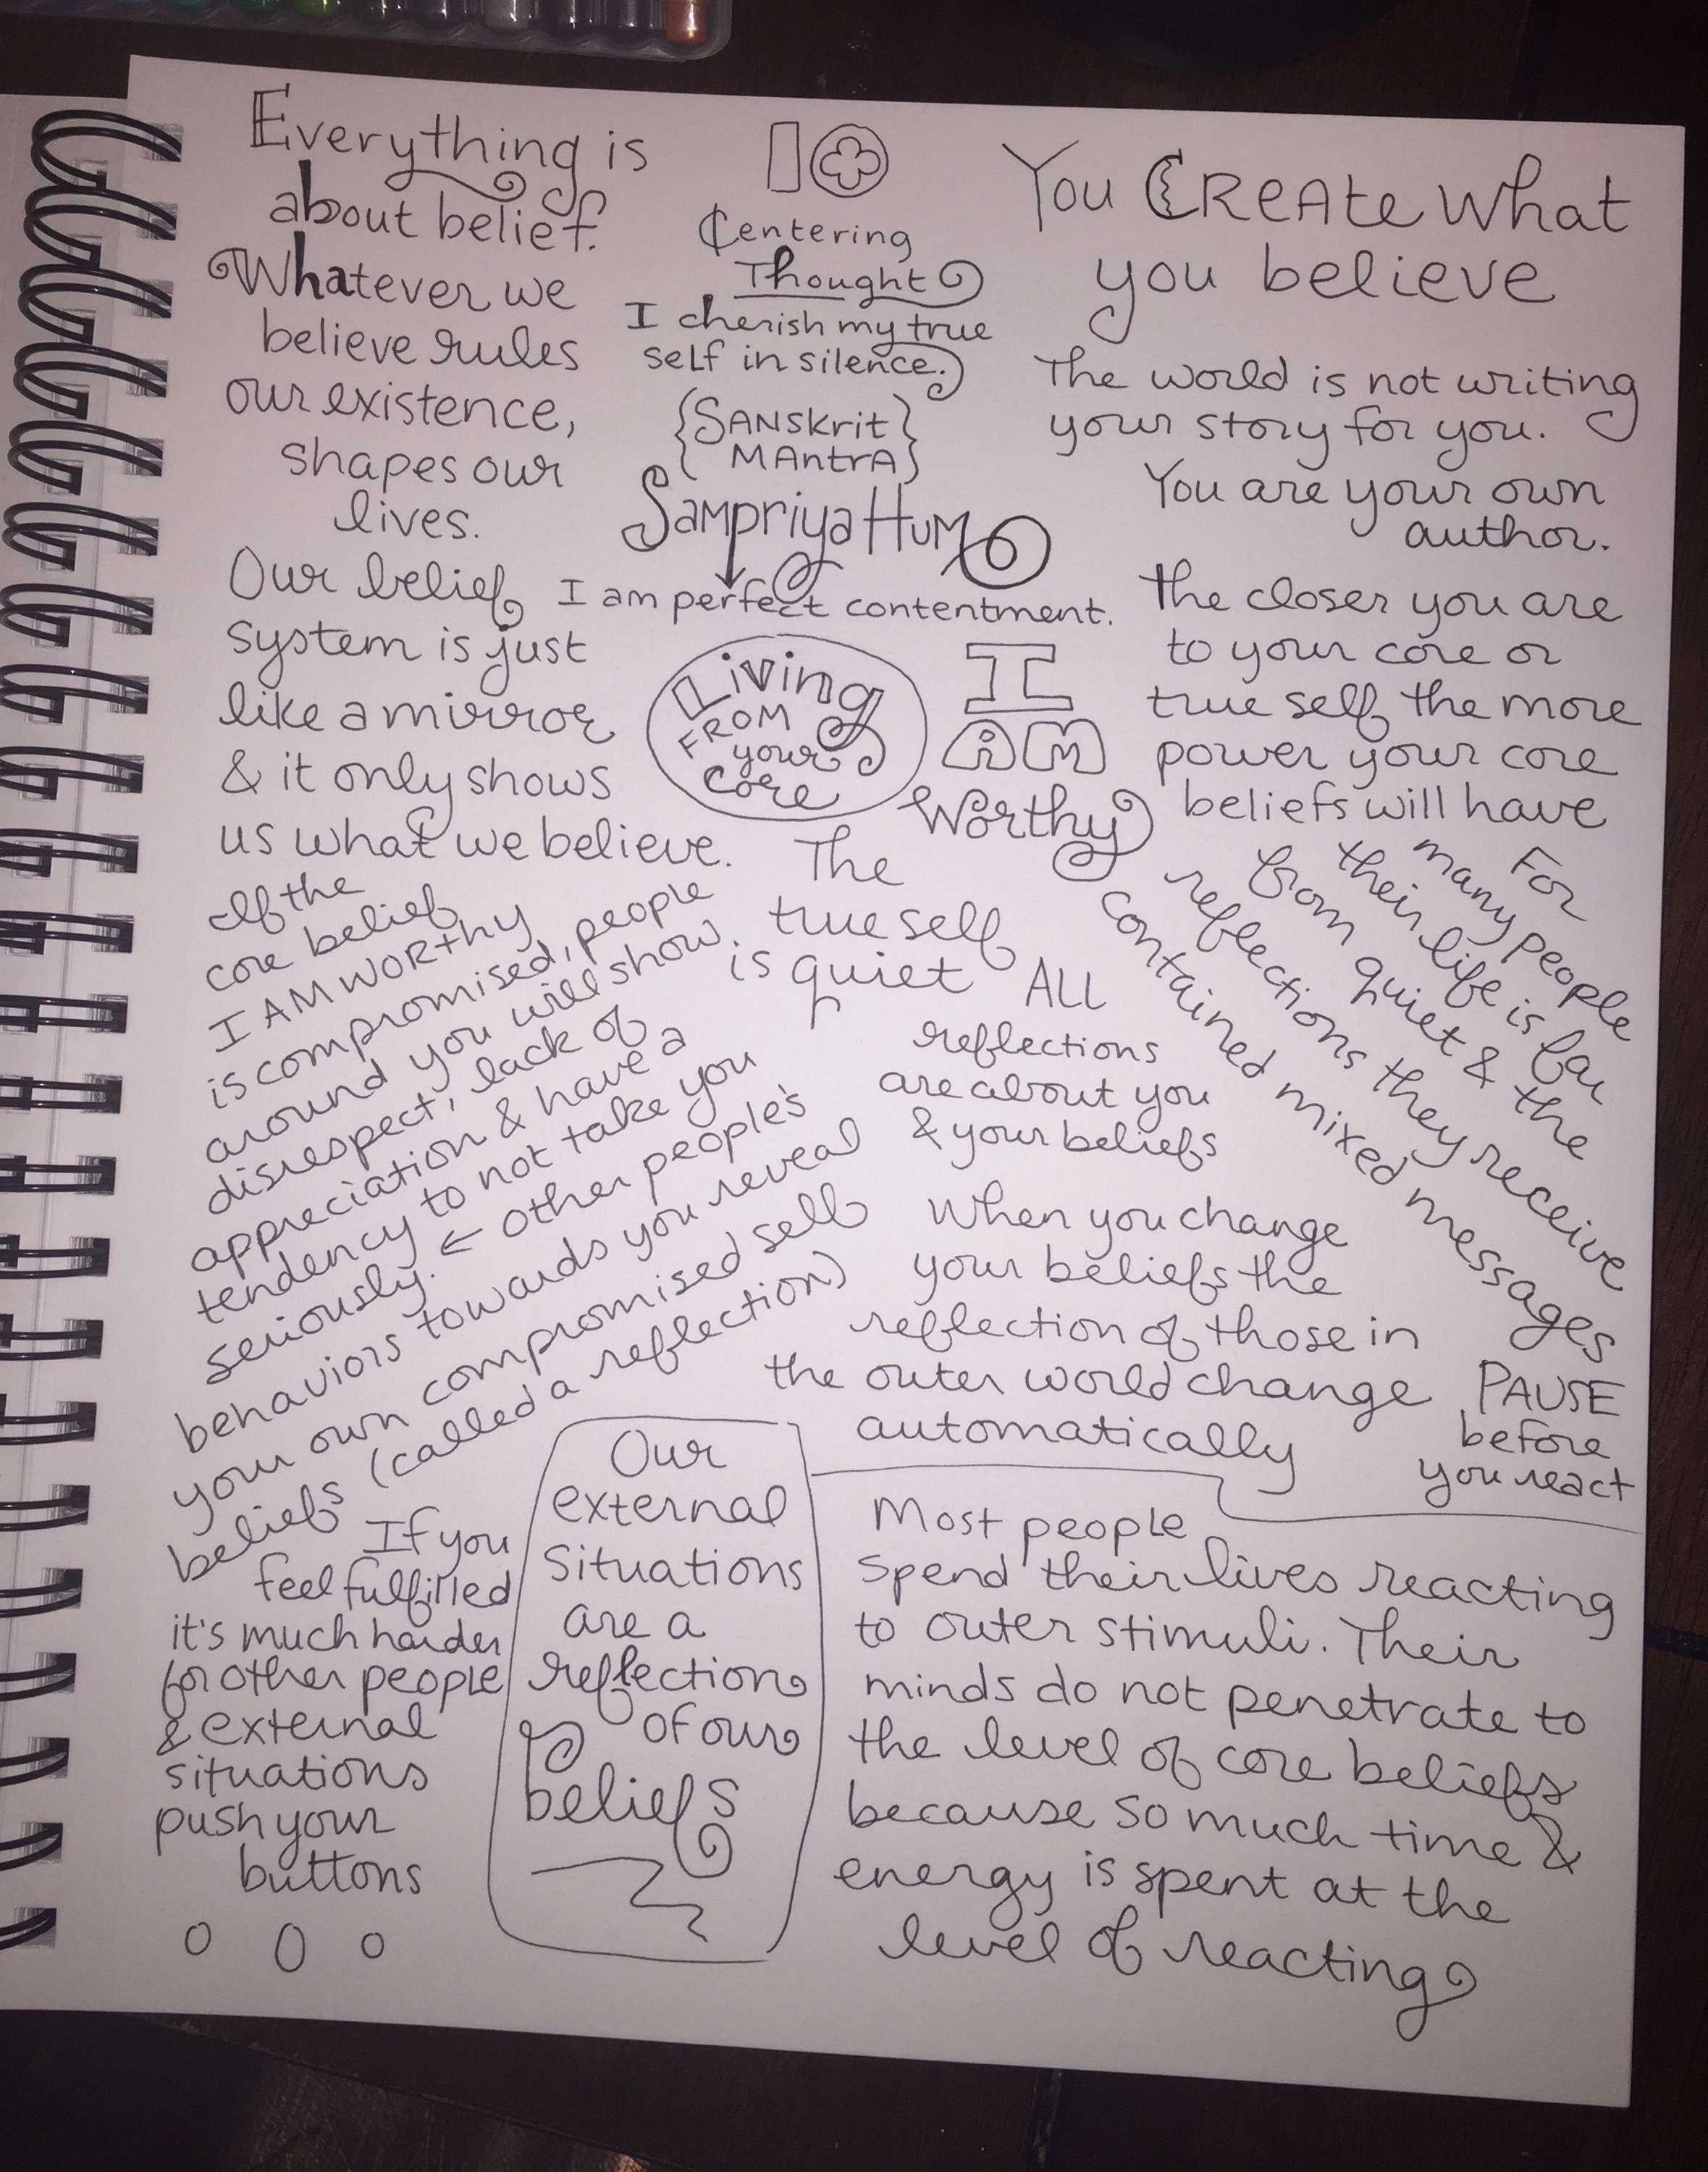 Everything is
about belief.
Whatever we
believe rules
our existence,
shapes our
lives.
Our belief
system is just
like a mirror
& it only shows
us what we believe.
If the
core belief
I AM WORthy
is compromised, people
around you will show
disrespect, lack of
appreciation & have a
tendency to not take you
seriously. ← other people's
behaviors towards you reveal
your own compromised self
beliefs (called a reflection)
If you
feel fulfilled
it's much harder
for other people
& external
situations
push your
buttons
10
Centering
Thought
I cherish my true
self in silence.
{SANSkrit
MAntrA}
Sampriya Hum
I am perfect contentment.
Living
FROM
your
Core
I
AM
Worthy
The
true self
is quiet
ALL
reflections
are about you
& your beliefs
When you change
your beliefs the
reflection of those in
the outer world change
automatically
Our
external
Situations
are a
reflection
of our
beliefs
You CReAte what
you believe
The world is not writing
your story for you.
You are your own
author.
The closer you are
to your core or
true self the more
power your core
beliefs will have
For
many people
their life is far
from quiet & the
reflections they receive
contained mixed messages
PAUSE
before
you react
Most people
spend their lives reacting
to outer stimuli. Their
minds do not penetrate to
the level of core beliefs
because so much time &
energy is spent at the
level of reacting